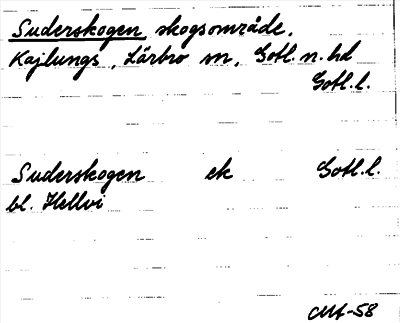 Suderskogen skogsområde.
Kajlungs, Lärbro sn, Gotl. n. hd
Gotl. l.
Suderskogen ek Gotl. l.
bl. Hellvi